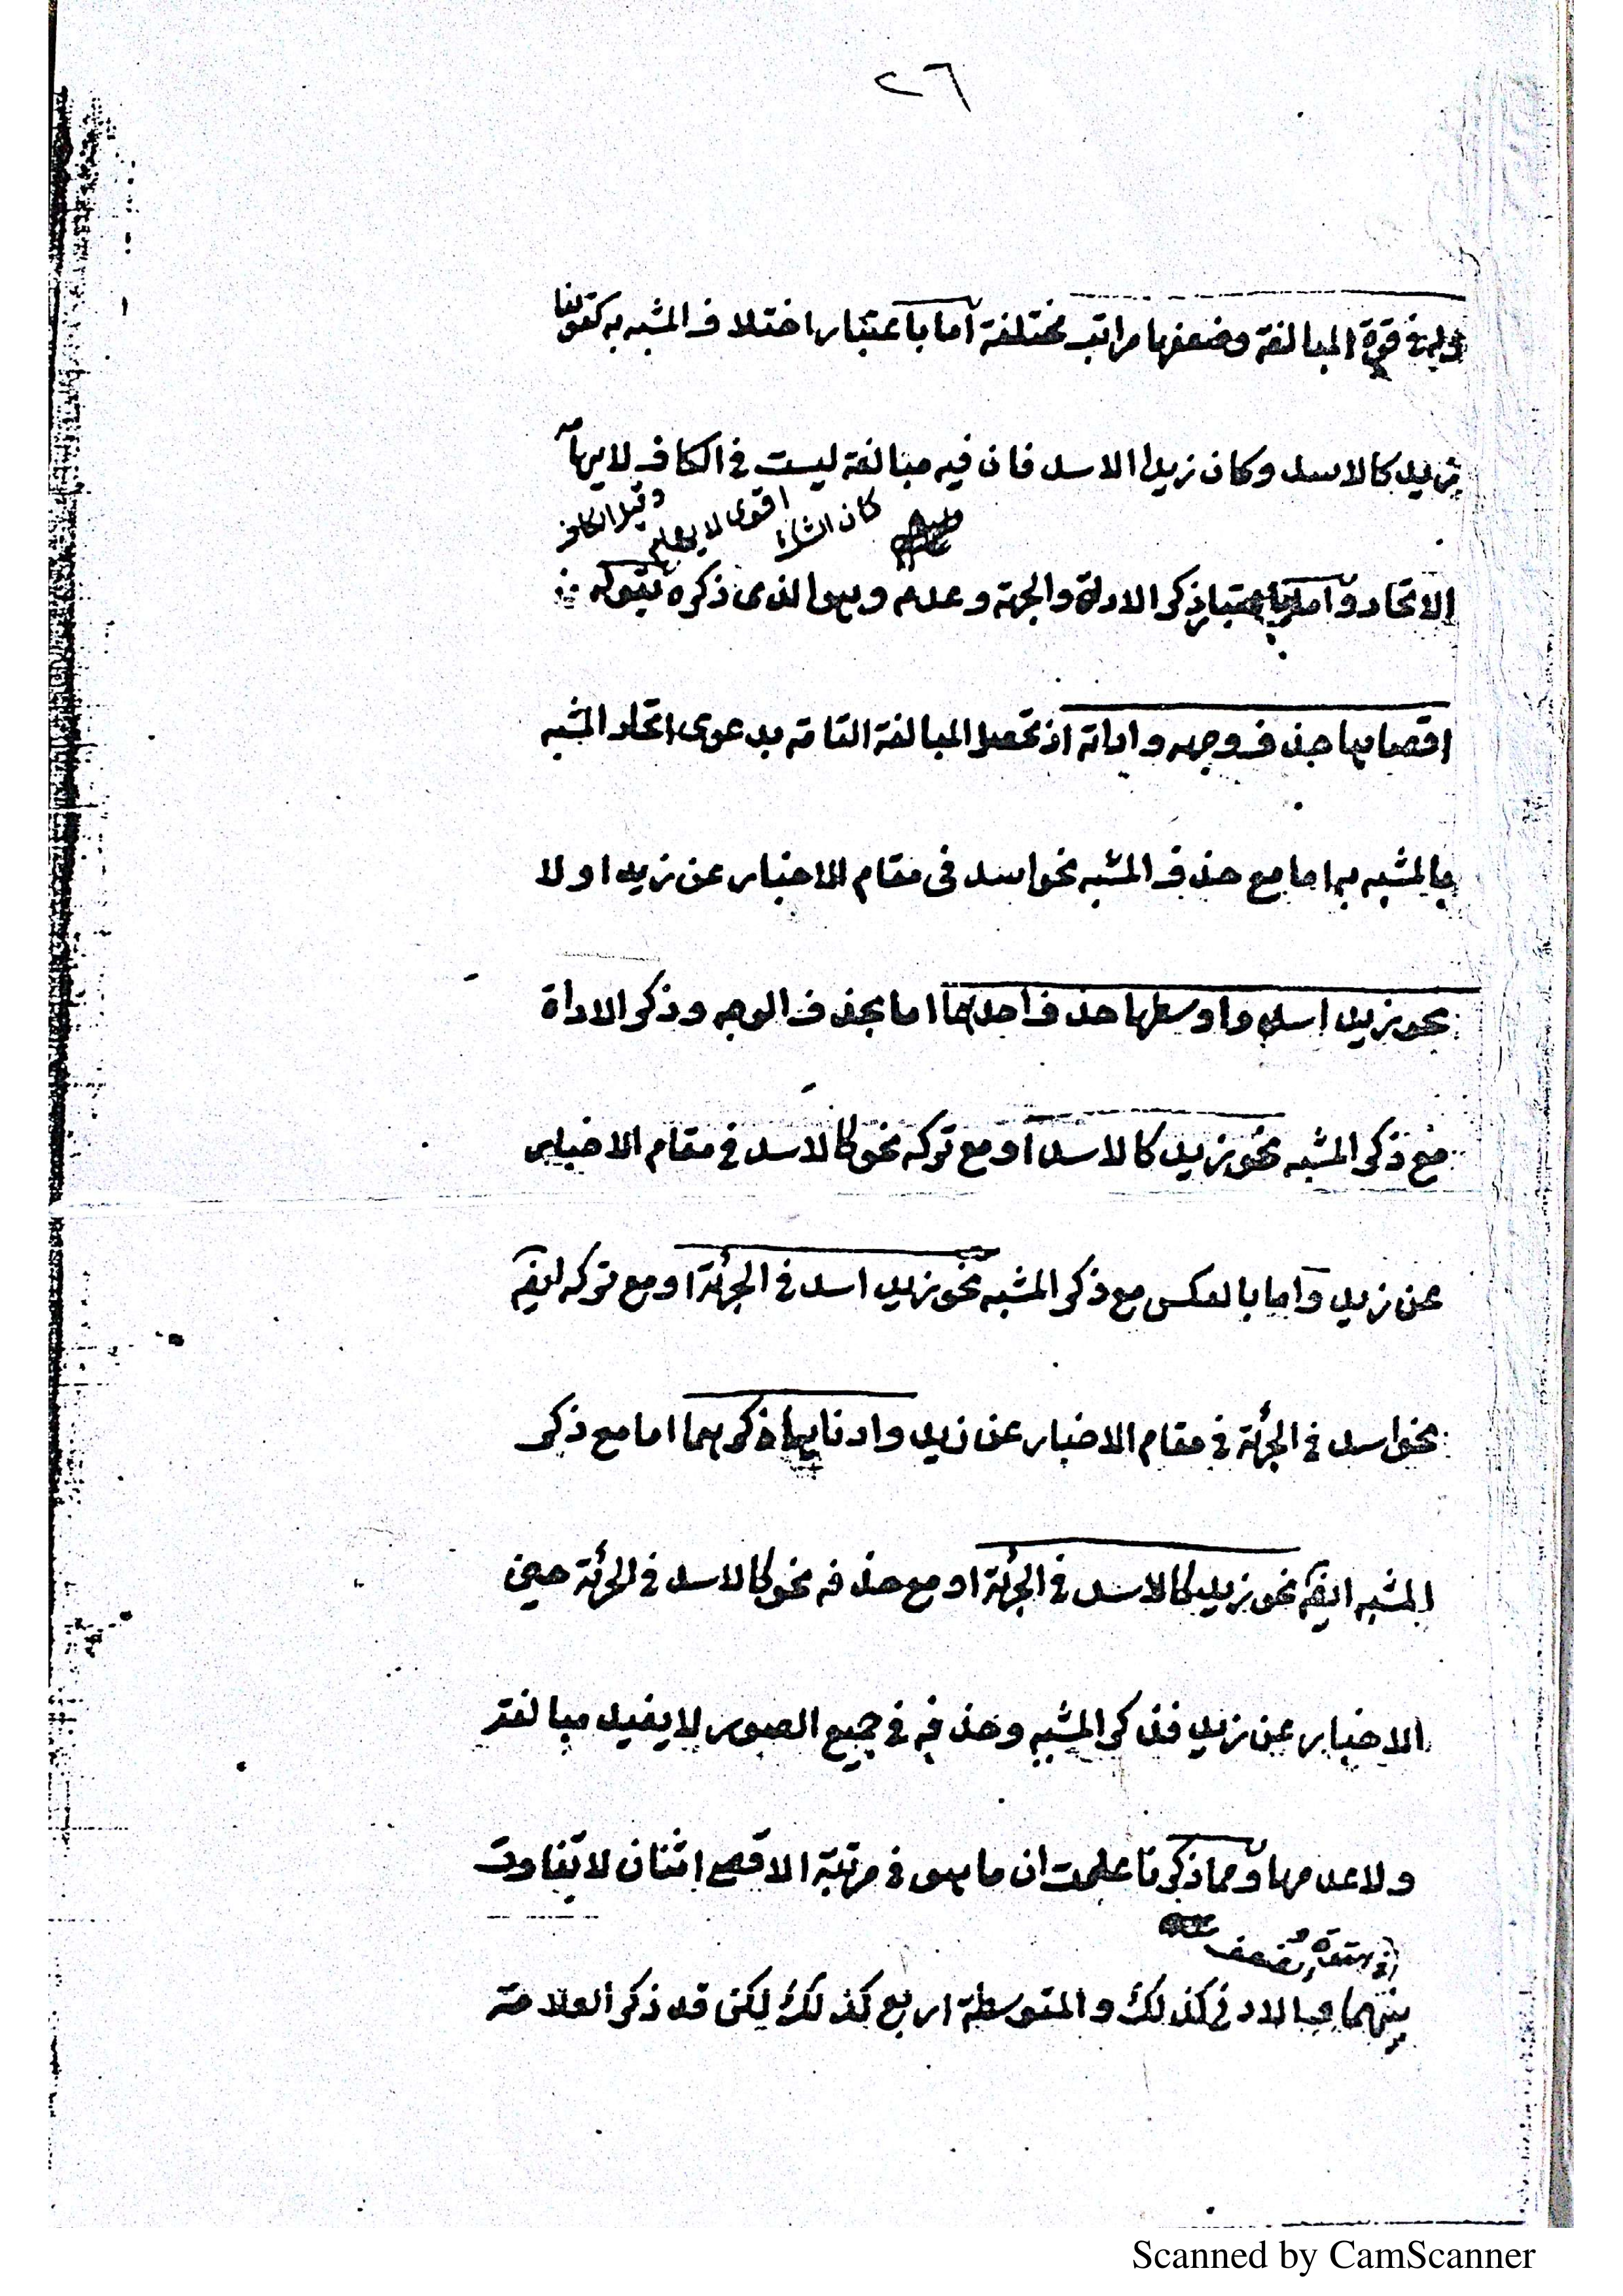 ٢٦
وله في قوة المبالغة وضعفها مراتب مختلفة اما باعتبار اختلاف المشبه به كقولنا
زيد كالاسد وكان زيدا الاسد فان فيه مبالغة ليست في الكاف لايهامه
كان التشبيه اقوى
الاتحاد واما باعتبار ذكر الاداة والوجه وعدمه وهو الذى ذكره بقوله
اقصاها حذف وجهه واداته اذ تحصل المبالغة التامة بدعوى اتحاد المشبه
بالمشبه به اما مع حذف المشبه نحو اسد فى مقام الاخبار عن زيد او لا
نحو زيد اسد واوسطها حذف احدهما اما بحذف الوجه وذكر الاداة
مع ذكر المشبه نحو زيد كالاسد او مع تركه نحو كالاسد في مقام الاخبار
عن زيد واما بالعكس مع ذكر المشبه نحو زيد اسد في الجرئة او مع تركه ايضا
نحو اسد في الجرئة في مقام الاخبار عن زيد وادناها ذكرهما اما مع ذكر
المشبه ايضا نحو زيد كالاسد في الجرئة او مع حذفه نحو كالاسد في الجرئة حين
الاخبار عن زيد فذكر المشبه وحذفه في جميع الصور لا يفيد مبالغة
ولا عدمها ومما ذكرنا علمت ان ما هو في مرتبة الاقصى اثنان لا تفاوت
بينهما والادنى كذلك والمتوسطة اربع كذلك لكن قد ذكر العلامة
Scanned by CamScanner